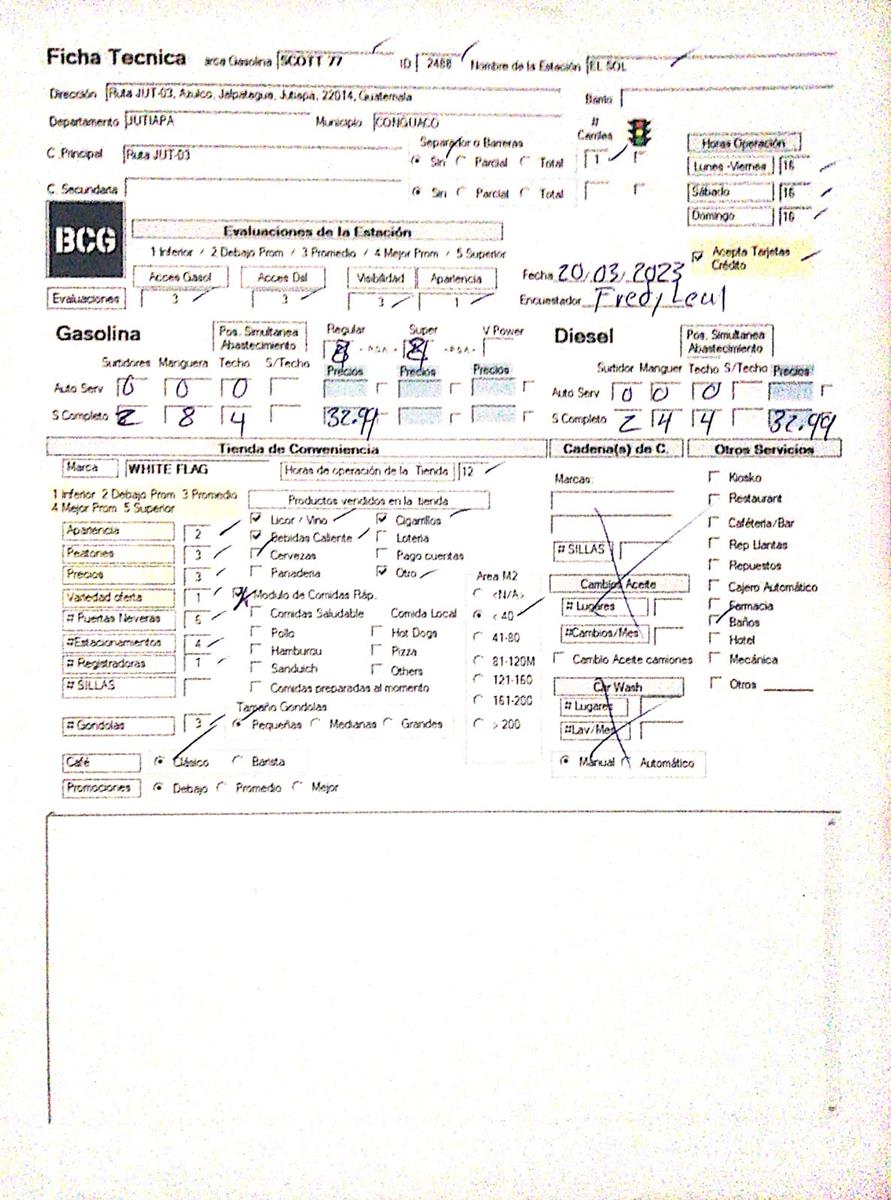 Ficha Tecnica arca Gasolina SCOTT 77 ID 2468 Nombre de la Estación EL SOL
Dirección Ruta JUT-03, Azulco, Jalpatagua, Jutiapa, 22014, Guatemala Barrio
Departamento JUTIAPA Municipio CONGUACO # Carriles
C.Principal Ruta JUT-03 Separador o Barreras Sin Parcial Total 1
C. Secundaria Sin Parcial Total
Horas Operación
Lunes -Viernes 16
Sábado 16
Domingo 16
BCG
Evaluaciones de la Estación
1 Inferior / 2 Debajo Prom / 3 Promedio / 4 Mejor Prom / 5 Superior
Acepta Tarjetas Crédito
Acces Gasol Acces Dsl Visibilidad Apariencia
Evaluaciones 3 3 3 1
Fecha 20/03/2023
Encuestador Fredy Leal
Gasolina Pos. Simultanea Abastecimiento Regular Super V Power
8 8
Surtidores Manguera Techo S/Techo Precios Precios Precios
Auto Serv 0 0 0
S Completo 2 8 4 32.99
Diesel Pos. Simultanea Abastecimiento
Surtidor Manguer Techo S/Techo Precios
Auto Serv 0 0 0
S Completo 2 4 4 32.99
Tienda de Conveniencia Cadena(s) de C. Otros Servicios
Marca WHITE FLAG Horas de operación de la Tienda 12
1 Inferior 2 Debajo Prom 3 Promedio
4 Mejor Prom 5 Superior
Productos vendidos en la tienda
Apariencia 2
Peatones 3
Precios 3
Variedad oferta 1
# Puertas Neveras 6
#Estacionamientos 4
# Registradoras 1
# SILLAS
# Gondolas 3
Licor / Vino Cigarrillos
Bebidas Caliente Loteria
Cervezas Pago cuentas
Panaderia Otro
Modulo de Comidas Ráp.
Comidas Saludable Comida Local
Pollo Hot Dogs
Hamburgu Pizza
Sanduich Others
Comidas preparadas al momento
Tamaño Gondolas
Pequeñas Medianas Grandes
Area M2
<N/A>
< 40
41-80
81-120M
121-160
161-200
> 200
Café Clásico Barista
Promociones Debajo Promedio Mejor
Marcas:
# SILLAS
Cambios Aceite
# Lugares
#Cambios/Mes
Cambio Aceite camiones
Car Wash
# Lugares
#Lav/Mes
Manual Automático
Kiosko
Restaurant
Caféteria/Bar
Rep Llantas
Repuestos
Cajero Automático
Farmacia
Baños
Hotel
Mecánica
Otros